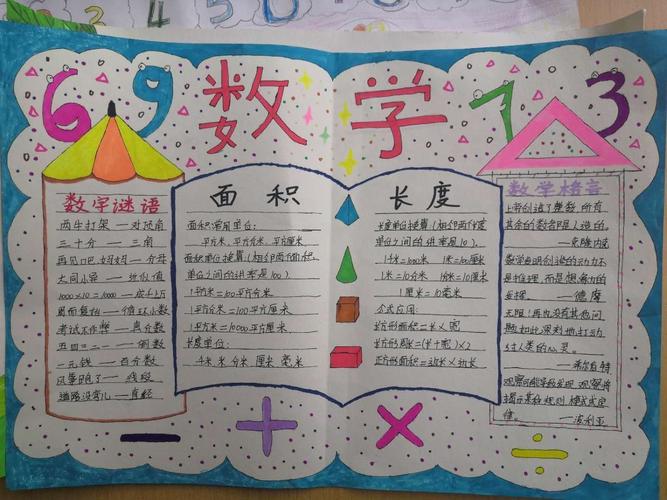 6 9 数学 7 3
数字谜语
两牛打架——对顶角
三十分——三角
再见吧,妈妈——分母
大同小异——近似值
1000×10=10000——成千上万
周而复始——循环小数
考试不作弊——真分数
五四三二一——倒数
一元钱——百分数
风筝跑了——线段
道路没弯儿——直径
面积
面积常用单位:
平方米、平方分米、平方厘米
面积单位换算(相邻两面积
单位之间的进率是100)
1平方米=100平方分米
1平方分米=100平方厘米
1平方米=10000平方厘米
长度单位:
米 分米 厘米 毫米
长度
长度单位换算(相邻两长度
单位之间的进率是10)
1米=10分米 1米=100厘米
1分米=10厘米
1厘米=10毫米
公式应用:
长方形面积=长×宽
长方形周长=(长+宽)×2
正方形面积=边长×边长
数学格言
上帝创造了整数,所有
其余的数都是人造的。
——克隆内克
数学发明创造的动力不
是推理,而是想象力的
发挥。——德摩
无限!再也没有其他问
题如此深刻地打动
过人类的心灵。
——希尔伯特
观察可能导致发现,观察将
揭示某种规则、模式或定
律。——波利亚
− + × ÷